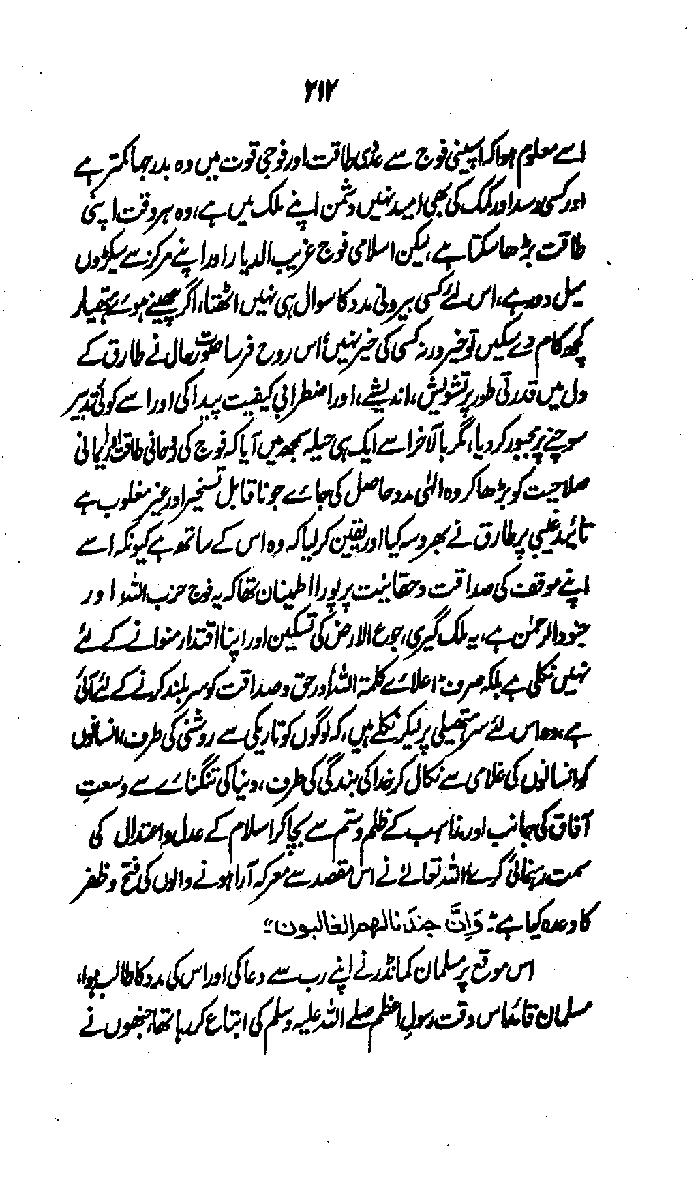 ۲۱۲
اسے معلوم ہوا کہ اسپینی فوج سے عددی طاقت اور فوجی قوت میں وہ بدرجہا کمتر ہے
اور کسی رسد اور کمک کی بھی امید نہیں دشمن اپنے ملک میں ہے، وہ ہر وقت اپنی
طاقت بڑھا سکتا ہے، لیکن اسلامی فوج غریب الدیار اور اپنے مرکز سے سیکڑوں
میل دور ہے، اس لئے کسی بیرونی مدد کا سوال ہی نہیں اٹھتا، اگر چھینے ہوئے ہتھیار
کچھ کام دے سکیں تو خیر ورنہ کسی کی خیر نہیں! اس روح فرسا صورت حال نے طارق کے
دل میں قدرتی طور پر تشویش، اندیشے، اور اضطرابی کیفیت پیدا کی اور اسے کوئی تدبیر
سوچنے پر مجبور کر دیا، مگر بالآخر اسے ایک ہی حیلہ سمجھ میں آیا کہ فوج کی روحانی طاقت اور ایمانی
صلاحیت کو بڑھا کر وہ الٰہی مدد حاصل کی جائے جو ناقابل تسخیر اور غیر مغلوب ہے
تائید غیبی پر طارق نے بھروسہ کیا اور یقین کر لیا کہ وہ اس کے ساتھ ہے کیونکہ اسے
اپنے موقف کی صداقت و حقانیت پر پورا اطمینان تھا کہ یہ فوج حزب اللہ اور
جنود الرحمٰن ہے، یہ ملک گیری، جوع الارض کی تسکین اور اپنا اقتدار منوانے کے لئے
نہیں نکلی ہے بلکہ صرف اعلائے کلمۃ اللہ اور حق و صداقت کو سر بلند کرنے کے لئے آئی
ہے، وہ اس لئے سر ہتھیلی پر لیکر نکلے ہیں، کہ لوگوں کو تاریکی سے روشنی کی طرف، انسانوں
کو انسانوں کی غلامی سے نکال کر خدا کی بندگی کی طرف، دنیا کی تنگنائے سے وسعتِ
آفاق کی جانب اور مذاہب کے ظلم و ستم سے بچا کر اسلام کے عدل و اعتدال کی
سمت رہنمائی کرے، اللہ تعالےٰ نے اس مقصد سے معرکہ آرا ہونے والوں کی فتح و ظفر
کا وعدہ کیا ہے: وَاِنَّ جندنا لھم الغالبون“
اس موقع پر مسلمان کمانڈر نے اپنے رب سے دعا کی اور اس کی مدد کا طالب ہوا،
مسلمان قائد اس وقت رسول اعظم صلے اللہ علیہ وسلم کی اتباع کر رہا تھا، جنھوں نے